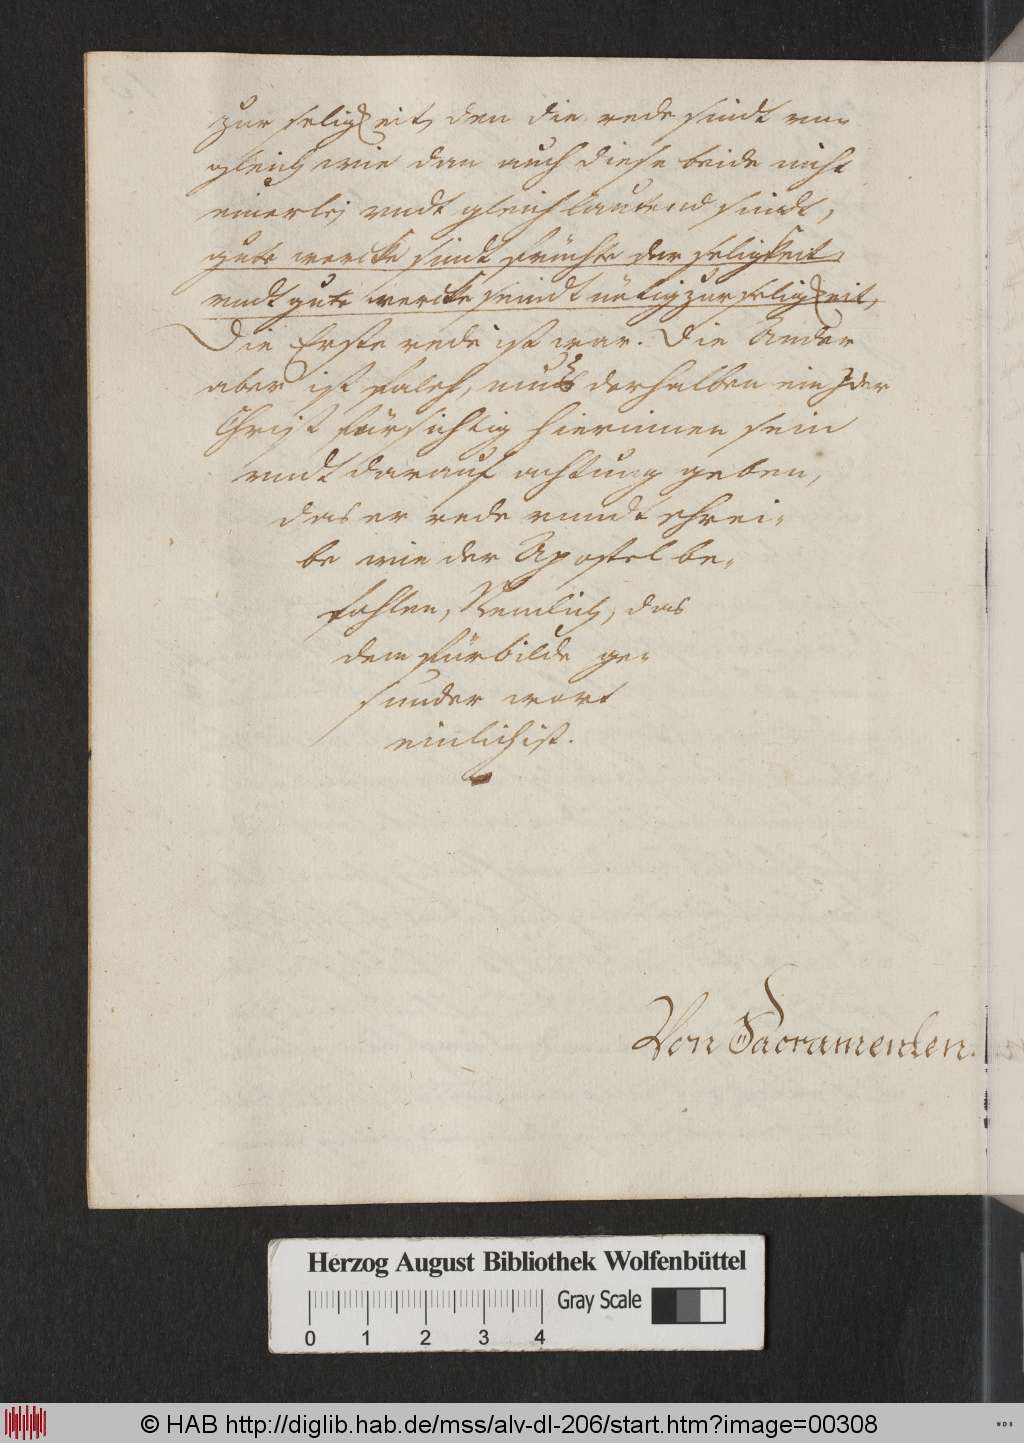 zur seligkeit, den die rede sindt vn=
gleich wie dan auch diese beide nicht
einerlej vndt gleich lautend sindt,
gute wercke sindt früchte der seligkeit,
vndt gute wercke seindt nötig zur seligkeit,
Die Erste rede ist war. Die Ander
aber ist falsch, mus derhalben ein Jder
Christ fürsichtig hierinnen sein
vndt darauf achtung geben,
das er rede vnndt schrei=
be wie der Apostel be=
fohlen, Nemlich, das
dem fürbilde ge=
sunder wort
einlich ist.
Von Sacramenten.
Herzog August Bibliothek Wolfenbüttel
0 1 2 3 4 Gray Scale
© HAB http://diglib.hab.de/mss/alv-dl-206/start.htm?image=00308